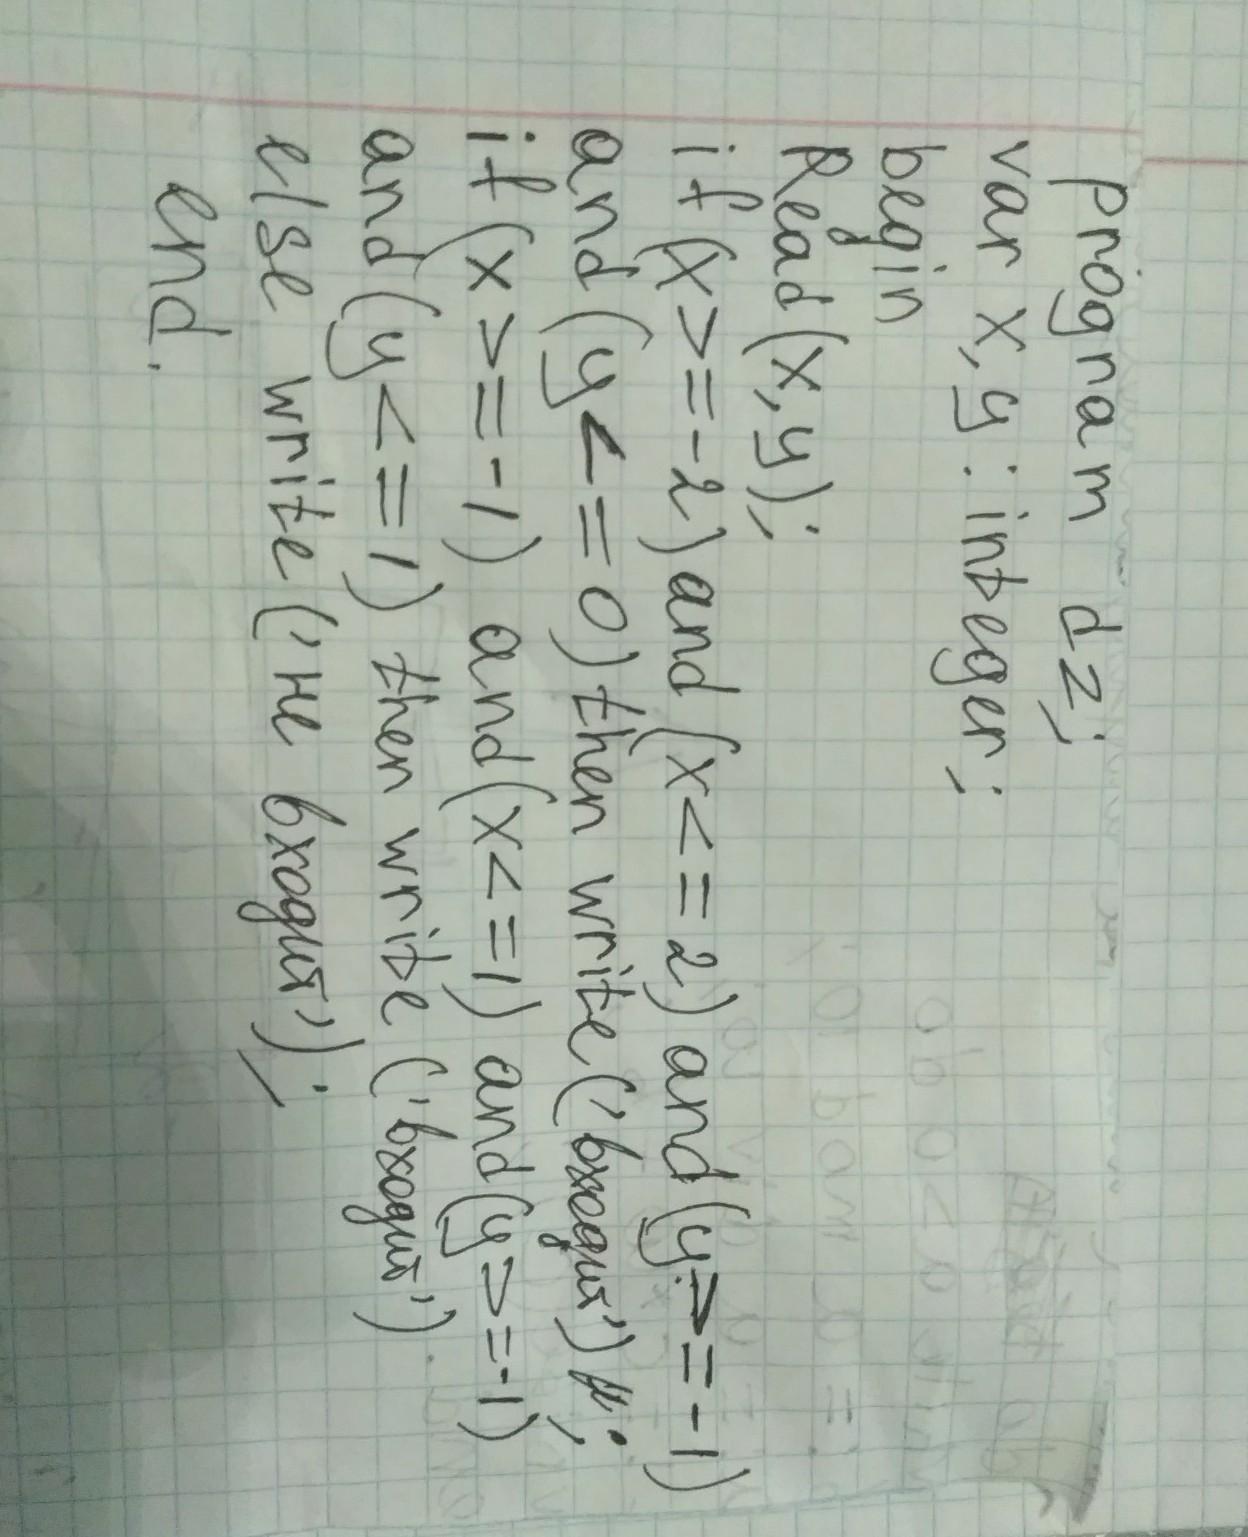 program dz;
var x,y: integer;
begin
Read(x,y);
if (x>=-2) and (x<=2) and (y>=-1)
and (y<=0) then write('входит');
if (x>=-1) and (x<=1) and (y>=-1)
and (y<=1) then write ('входит')
else write ('не входит');
end.